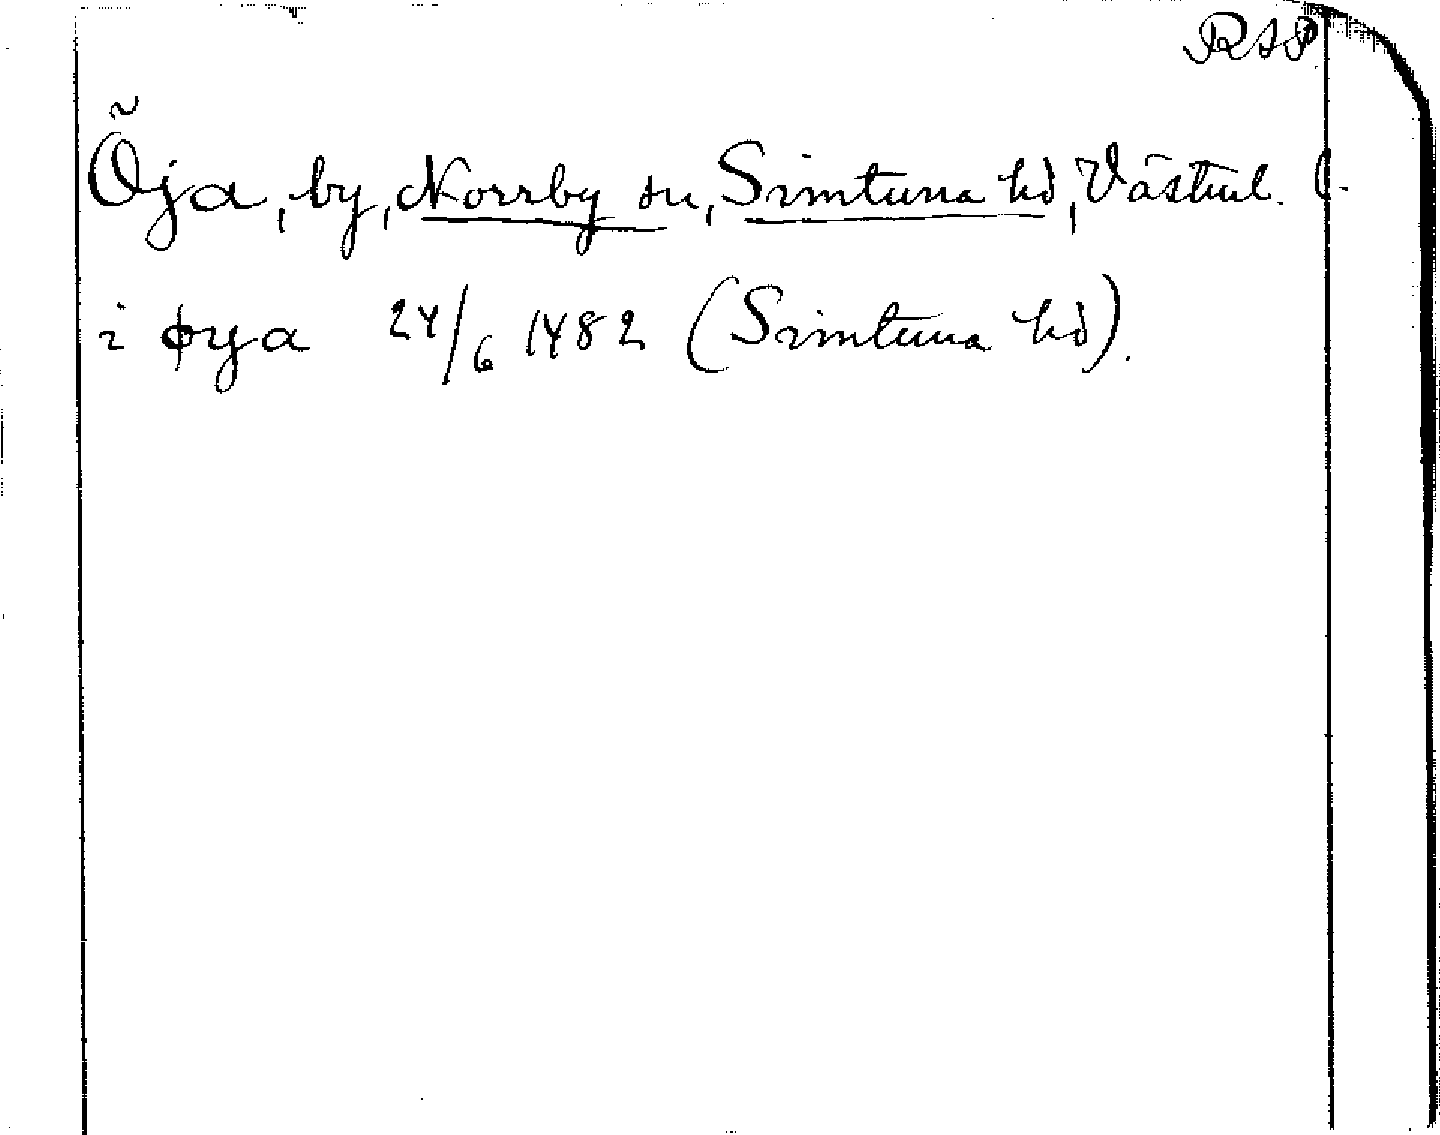 RAP
Öja, by, Norrby sn, Simtuna hd, Västml. l.
i øya 24/6 1482 (Simtuna hd).